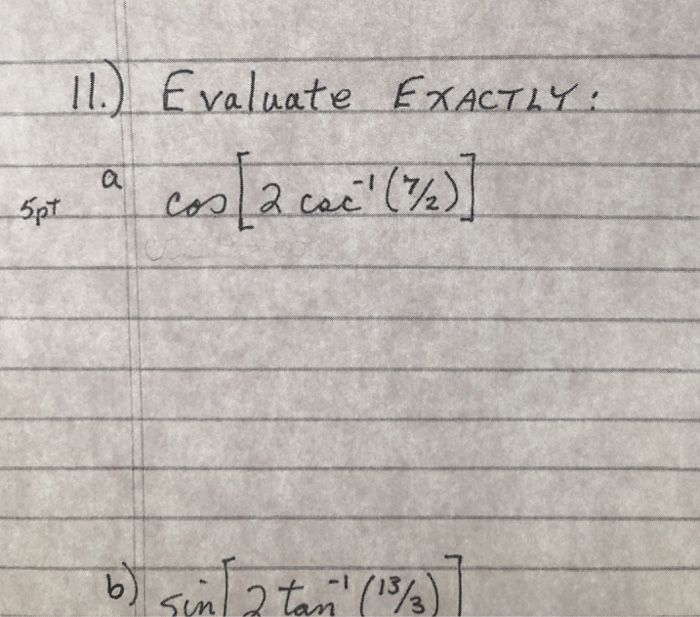 11.) Evaluate EXACTLY:
a cos[2 csc⁻¹(7/2)]
5pt
b) sin[2 tan⁻¹(13/3)]